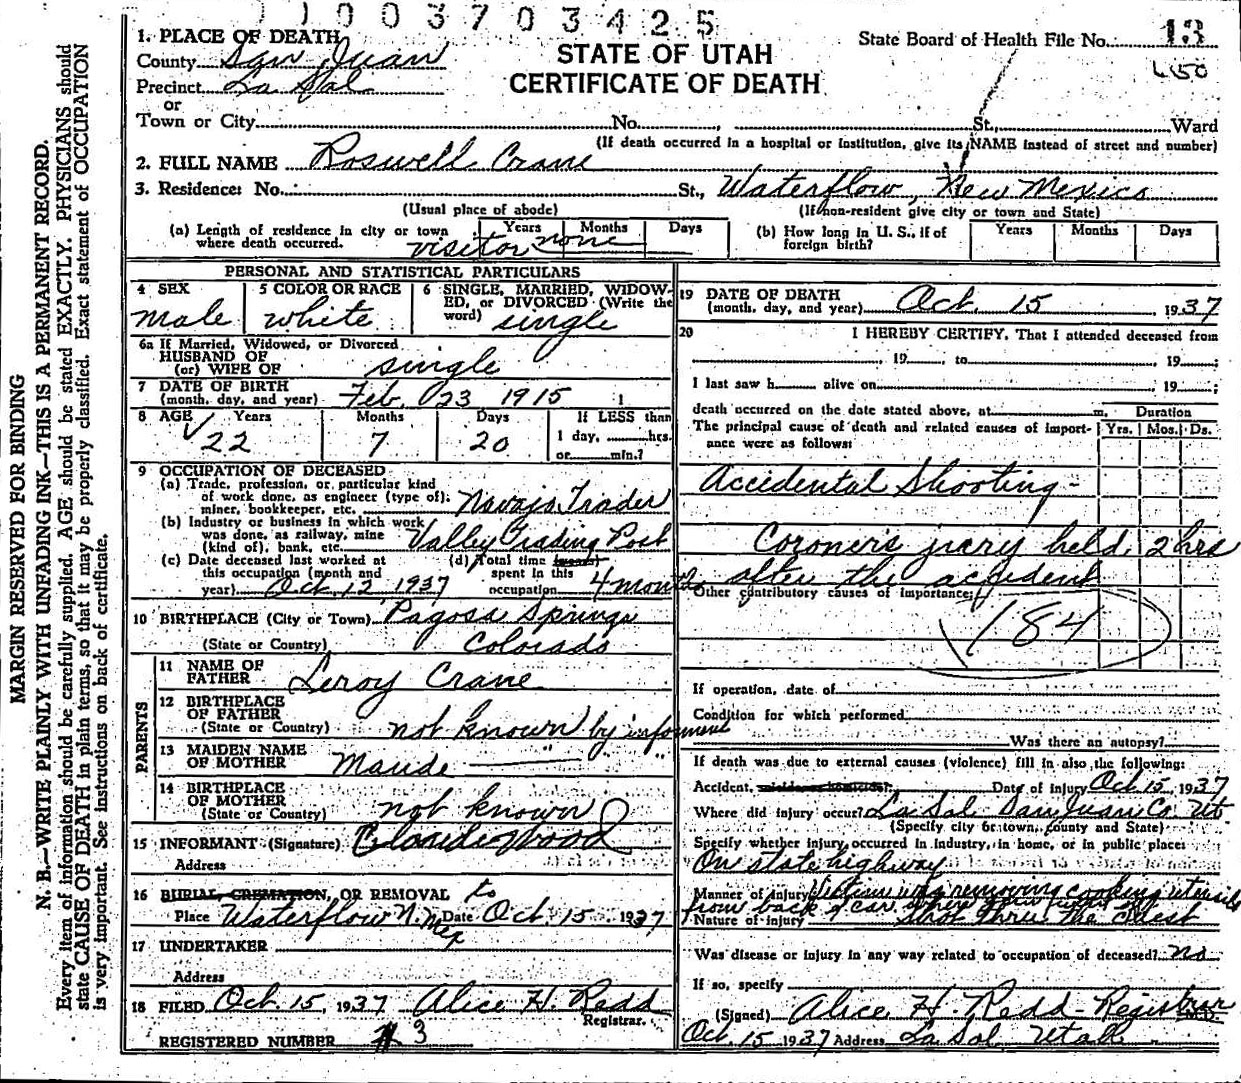 1003703425
1. PLACE OF DEATH
County San Juan
Precinct La Sal
or
Town or City No. , St., Ward
STATE OF UTAH
CERTIFICATE OF DEATH
State Board of Health File No. 13
(If death occurred in a hospital or institution, give its NAME instead of street and number)
2. FULL NAME Roswell Crane
3. Residence: No. St., Waterflow, New Mexico
(Usual place of abode) (If non-resident give city or town and State)
(a) Length of residence in city or town where death occurred. Years Months Days
visitor none
(b) How long in U. S., if of foreign birth? Years Months Days
PERSONAL AND STATISTICAL PARTICULARS
4 SEX
male
5 COLOR OR RACE
white
6 SINGLE, MARRIED, WIDOWED, or DIVORCED (Write the word) single
6a If Married, Widowed, or Divorced
HUSBAND OF
(or) WIFE OF single
7 DATE OF BIRTH
(month, day, and year) Feb 23 1915
8 AGE Years Months Days If LESS than
22 7 20 1 day, hrs.
or min.?
9 OCCUPATION OF DECEASED
(a) Trade, profession, or particular kind
of work done, as engineer (type of);
miner, bookkeeper, etc. Navajo Trader
(b) Industry or business in which work
was done, as railway, mine
(kind of), bank, etc. Valley Trading Post
(c) Date deceased last worked at
this occupation (month and
year) Oct 12 1937
(d) Total time (years)
spent in this
occupation 4 months
10 BIRTHPLACE (City or Town) Pagosa Springs
(State or Country) Colorado
PARENTS
11 NAME OF
FATHER Leroy Crane
12 BIRTHPLACE
OF FATHER
(State or Country) not known by informent
13 MAIDEN NAME
OF MOTHER Maude — "
14 BIRTHPLACE
OF MOTHER
(State or Country) not known
15 INFORMANT (Signature) Claude Wood
Address
16 BURIAL, CREMATION, OR REMOVAL to
Place Waterflow N. Mex Date Oct 15, 1937
17 UNDERTAKER
Address
18 FILED Oct. 15, 1937 Alice H. Redd
Registrar.
REGISTERED NUMBER # 3
19 DATE OF DEATH
(month, day, and year) Oct. 15, 1937
20 I HEREBY CERTIFY, That I attended deceased from
, 19 , to , 19 ;
I last saw h alive on , 19 ;
death occurred on the date stated above, at m. Duration
The principal cause of death and related causes of importance were as follows: Yrs. Mos. Ds.
Accidental Shooting -
Coroner's jury held 2 hrs
after the accident
Other contributory causes of importance:
184
If operation, date of
Condition for which performed
Was there an autopsy?
If death was due to external causes (violence) fill in also the following:
Accident, suicide or homicide? Date of injury Oct 15, 1937
Where did injury occur? La Sal San Juan Co. Ut
(Specify city or town, county and State)
Specify whether injury occurred in industry, in home, or in public place:
On state highway
Manner of injury Victim was removing cooking utensils
from back of car
Nature of injury shot thru the chest
Was disease or injury in any way related to occupation of deceased? no
If so, specify
(Signed) Alice H. Redd - Registrar
Oct. 15 1937 Address La Sal Utah
MARGIN RESERVED FOR BINDING
N. B.—WRITE PLAINLY WITH UNFADING INK—THIS IS A PERMANENT RECORD.
Every item of information should be carefully supplied. AGE should be stated EXACTLY. PHYSICIANS should
state CAUSE OF DEATH in plain terms, so that it may be properly classified. Exact statement of OCCUPATION
is very important. See instructions on back of certificate.